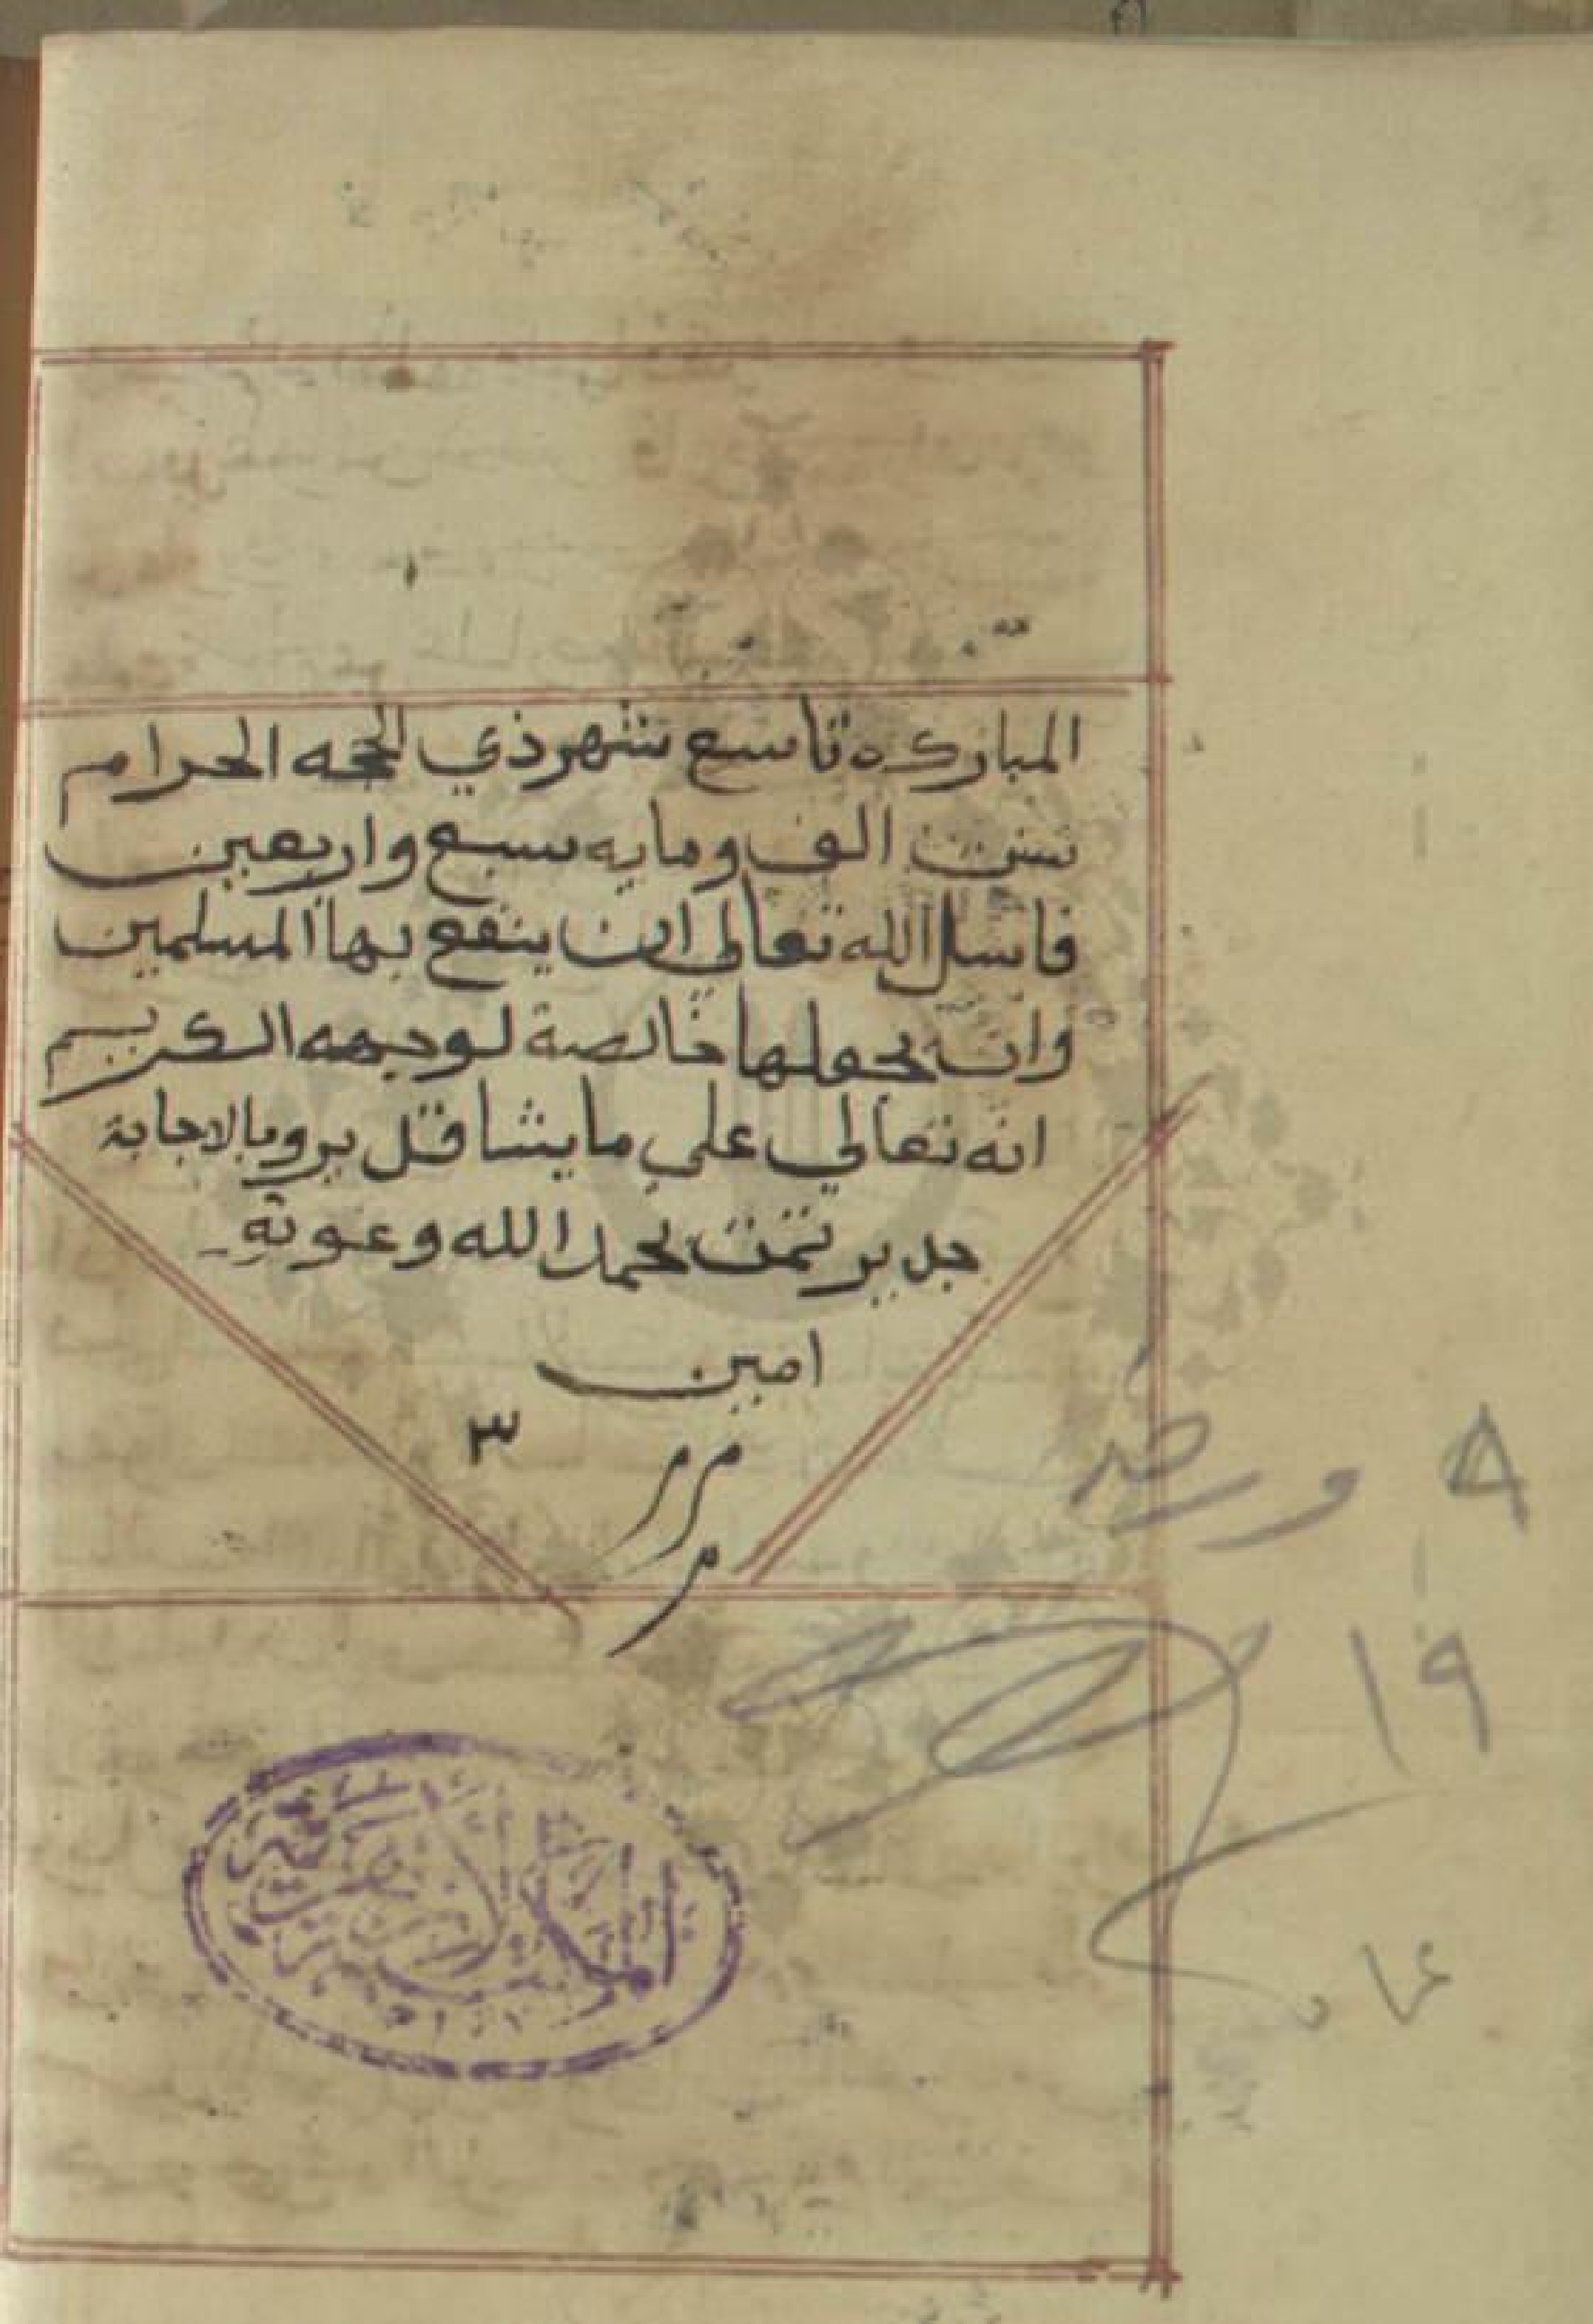 المباركه تاسع شهر ذي الحجه الحرام
سنت الف ومايه سبع واربعين
فاسل الله تعالي ان ينفع بها المسلمين
وان يجعلها خالصة لوجهه الكريم
انه تعالي علي ما يشا قدير وبالاجابة
جدير تمت بحمد الله وعونه
امين
٣
م م
م
٨
١٩